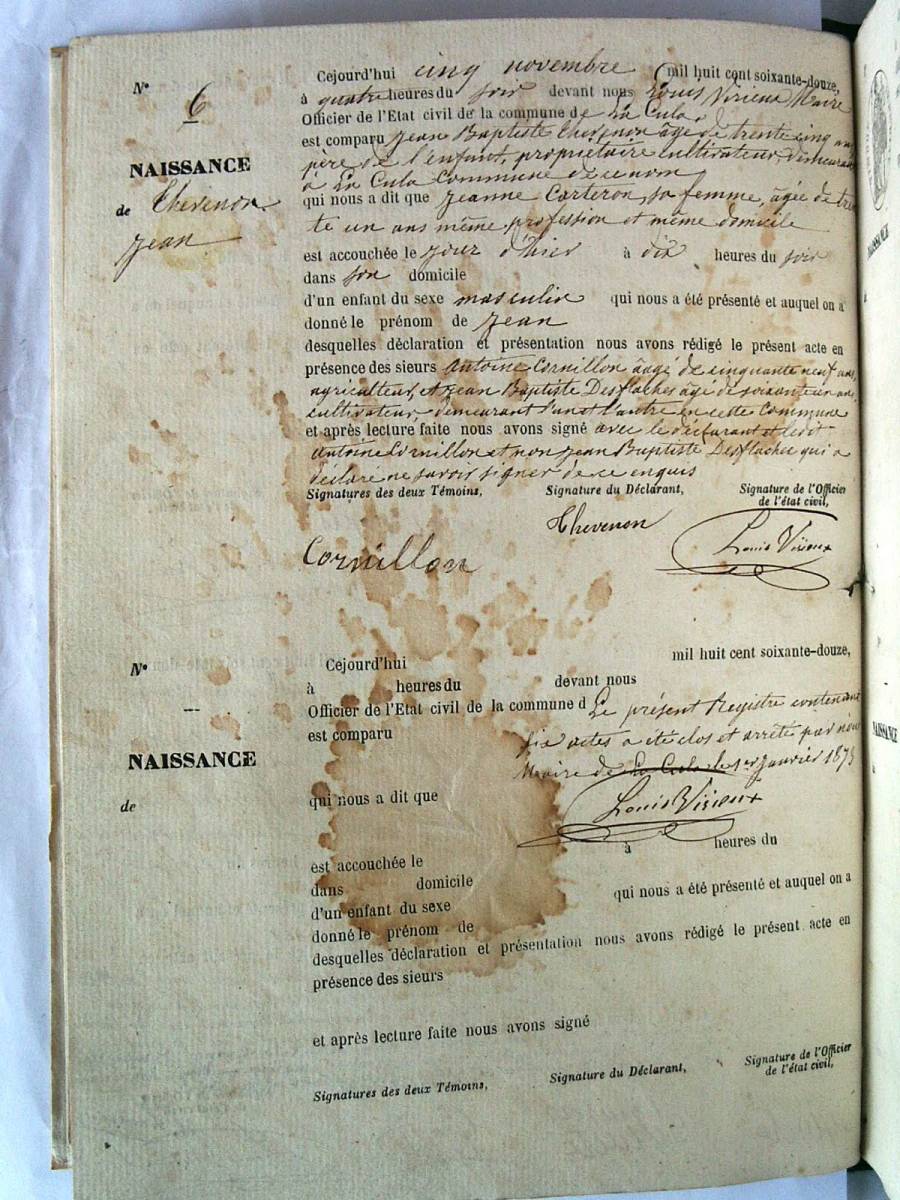 N° 6
NAISSANCE
de Thevenon
Jean
Cejourd'hui cinq novembre mil huit cent soixante-douze,
à quatre heures du soir devant nous Louis Virieux Maire
Officier de l'Etat civil de la commune de La Cula.
est comparu Jean Baptiste Thevenon âgé de trente cinq ans
père de l'enfant, propriétaire cultivateur, demeurant
à La Cula Commune de ce nom
qui nous a dit que Jeanne Carteron, sa femme, âgée de tren
te un ans même profession et même domicile
est accouchée le jour d'hier à dix heures du soir
dans son domicile
d'un enfant du sexe masculin qui nous a été présenté et auquel on a
donné le prénom de Jean
desquelles déclaration et présentation nous avons rédigé le présent acte en
présence des sieurs Antoine Cornillon âgé de cinquante neuf ans,
agriculteur, et Jean Baptiste Desflaches âgé de soixante un ans
cultivateur demeurant l'un et l'autre en cette Commune
et après lecture faite nous avons signé avec le déclarant et ledit
Antoine Cornillon et non Jean Baptiste Desflaches qui a
déclaré ne savoir signer de ce enquis
Signatures des deux Témoins, Signature du Déclarant, Signature de l'Officier
de l'état civil,
Thevenon
Cornillon
Louis Virieux
N°
NAISSANCE
de
Cejourd'hui mil huit cent soixante-douze,
à heures du devant nous
Officier de l'Etat civil de la commune d Le présent Registre contenant
est comparu six actes a été clos et arrêté par nous
Maire de La Cula le 1er janvier 1873
qui nous a dit que Louis Virieux
à heures du
est accouchée le
dans domicile
d'un enfant du sexe qui nous a été présenté et auquel on a
donné le prénom de
desquelles déclaration et présentation nous avons rédigé le présent acte en
présence des sieurs
et après lecture faite nous avons signé
Signatures des deux Témoins, Signature du Déclarant, Signature de l'Officier
de l'état civil,
NAISSANCE
NAISSANCE